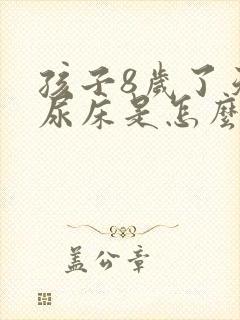 孩子8歲了
尿床是怎麼
蓋公章